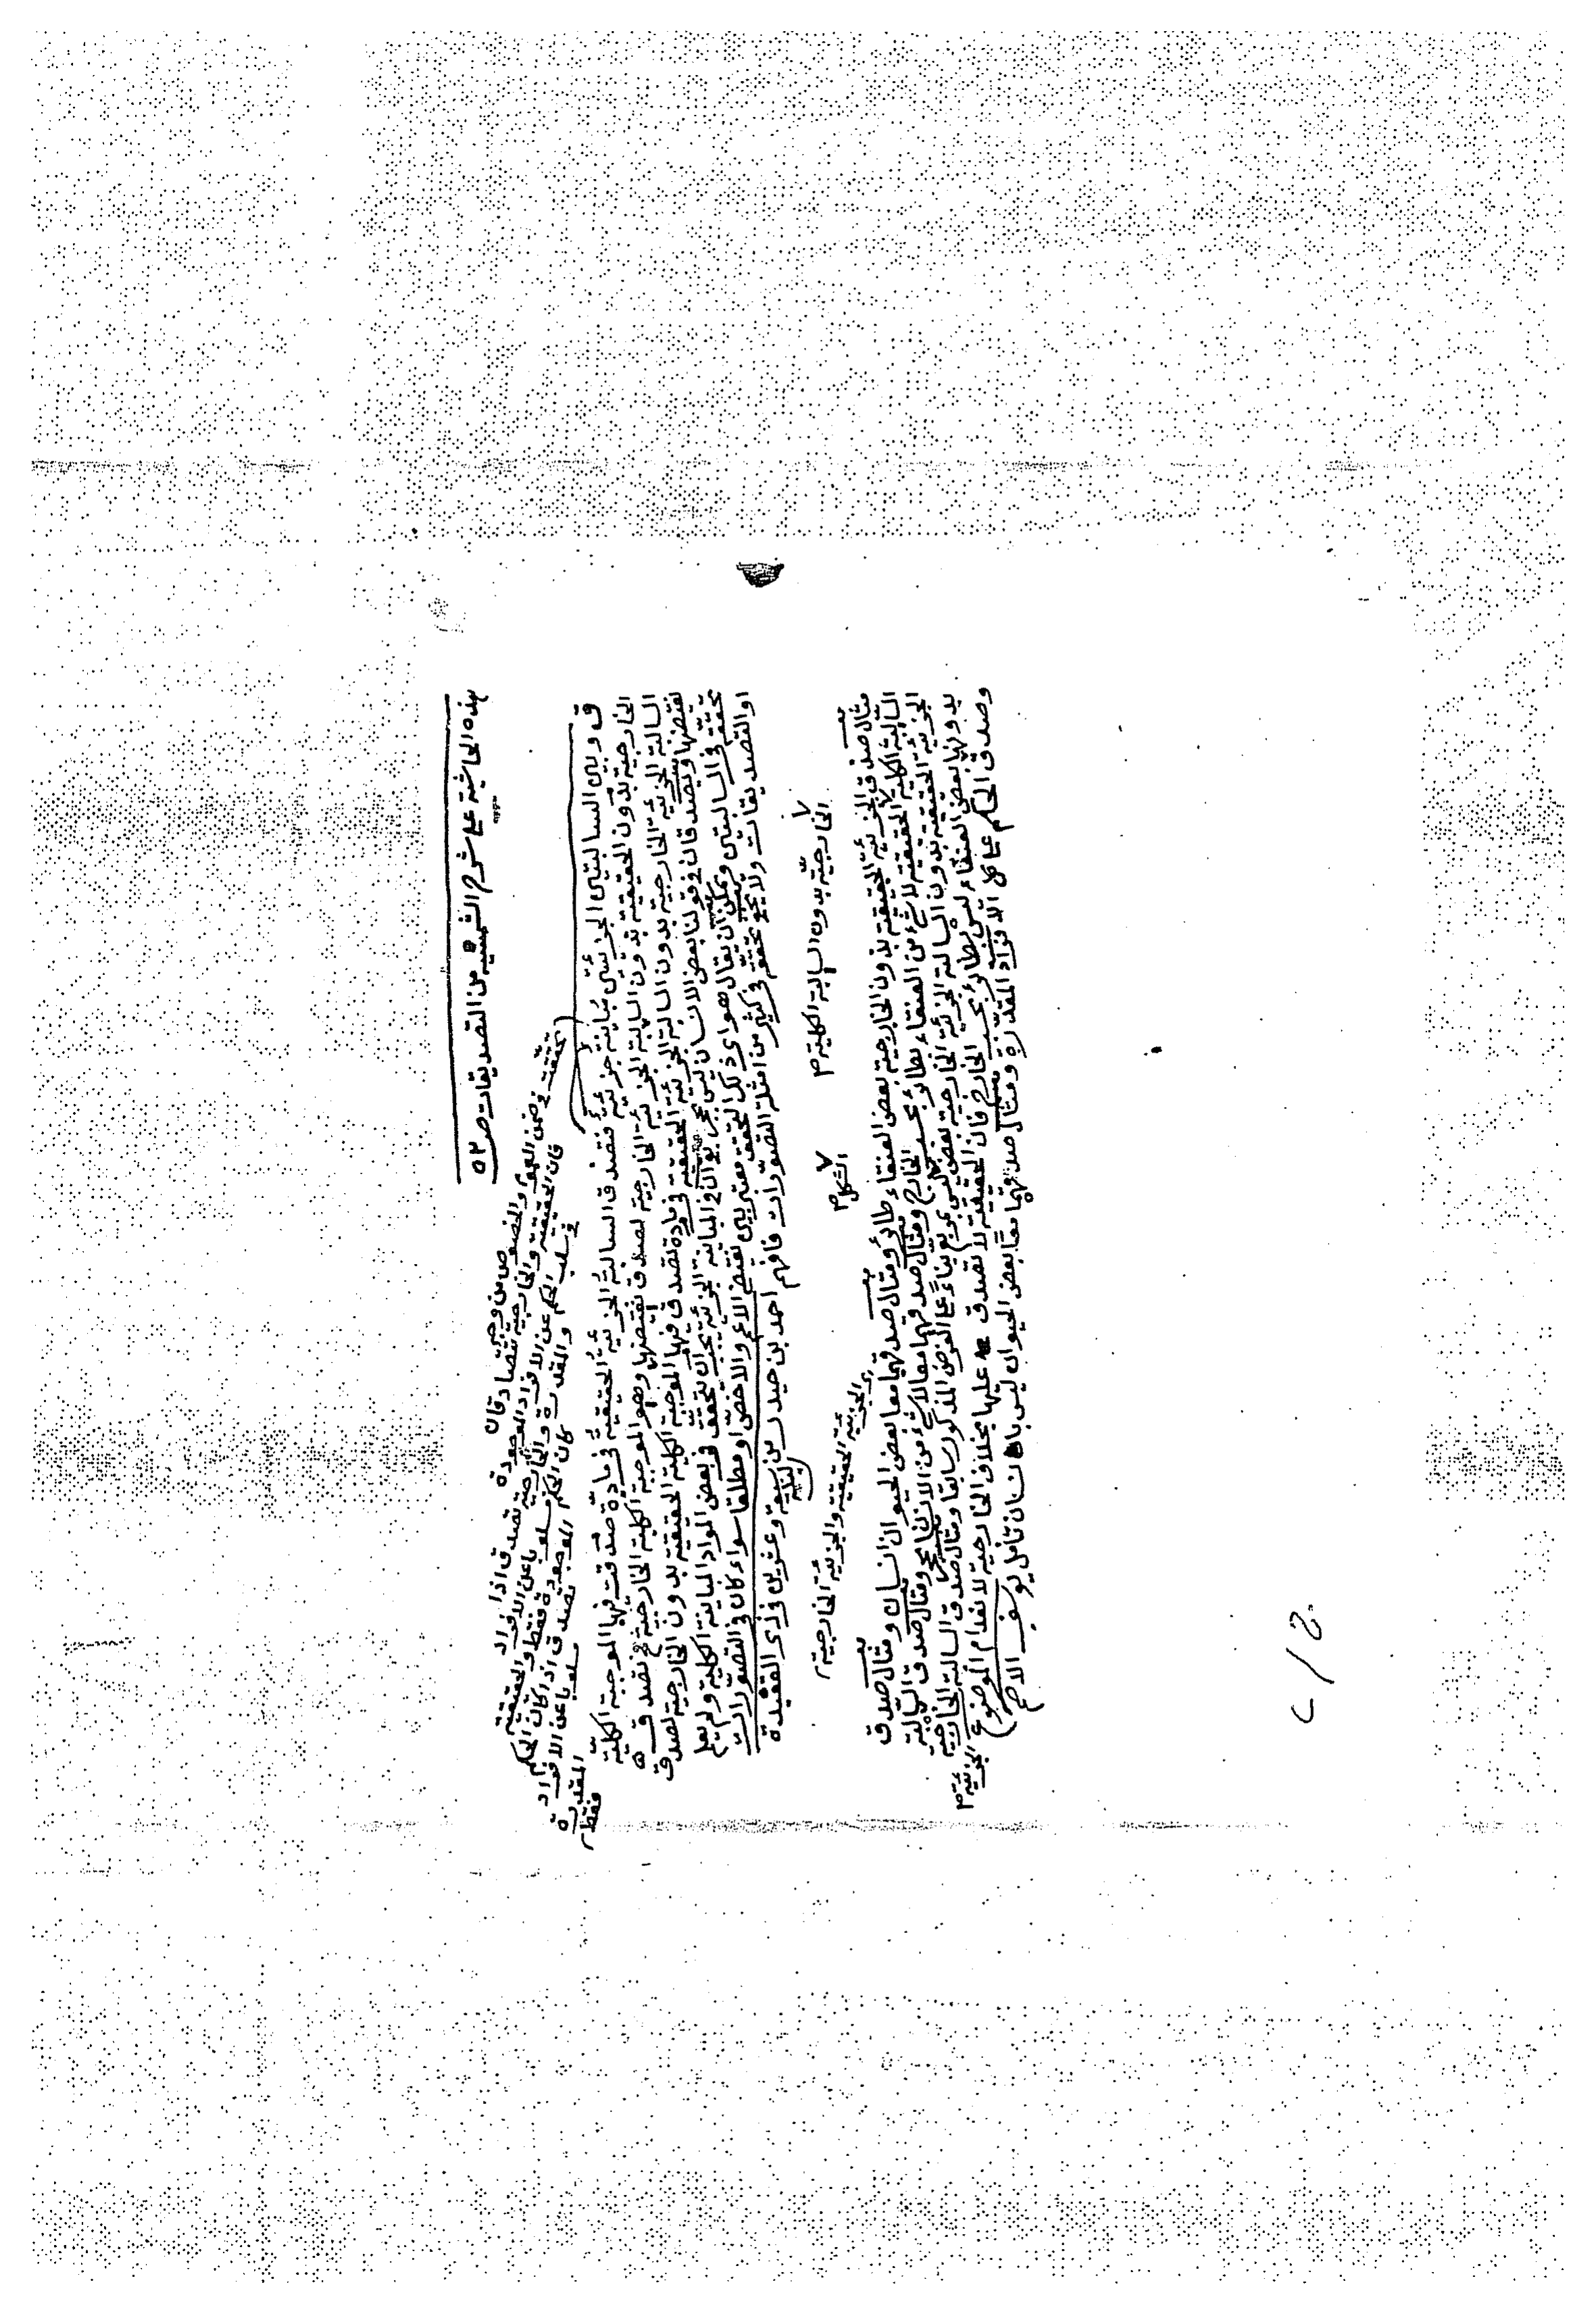 هذه الحاشية على شرح الشمسية من التصديقات صـ ٥٢
تحققت في ضمن العموم والخصوص من وجه
فان الحقيقية والخارجية تتصادقان
في سلب الحكم عن الافراد الموجودة
والمقدرة والخارجية تصدق اذا
كان الحكم مسلوبا عن الافراد
الموجودة فقط والحقيقية
تصدق اذا كان الحكم
مسلوبا عن الافراد
المقدرة
فقط
ق وبين السالبتين الجزئيتين مباينة جزئية فتصدق السالبة الجزئية الحقيقية في مادة صدقت فيها الموجبة الكلية
الخارجية بدون الحقيقية بدون السالبة الجزئية الخارجية لصدق نقيضها وهو الموجبة الكلية الخارجية وتصدق
السالبة الجزئية الخارجية بدون السالبة الجزئية الحقيقية في مادة تصدق فيها الموجبة الكلية الحقيقية بدون الخارجية لصدق
نقيضها ويصدقان في قولنا بعض الانسان ليس بحجر بقي ان المباينة الجزئية يجب ان تتحقق في بعض المواد المباينة الكلية ولم يعلم
تحققه في السالبتين ويمكن ان يقال هو اي ذلك التحقق معتبر بين نقيضي الاعم والاخص مطلقا سواء كان في التصورات
او التصديقات ولا يجب تحققه في كثير من امثلة التصورات فافهم احمد بن حيدر بن
الخارجية بدون السالبة الكلية م
الشكل م
اي الجزئية الحقيقية والجزئية الخارجية
مثال صدق الجزئية الحقيقية بدون الخارجية بعض العنقاء طائر ومثال صدقهما معا بعض الحيوان انسان ومثال صدق
السالبة الكلية الحقيقية لا شيء من العنقاء بطائر بحسب الخارج ومثال صدقهما معا لا شيء من الانسان بحجر ومثال صدق السالبة
الجزئية الحقيقية بدون السالبة الجزئية الخارجية بعض ليس بمربع بناء على الفرض المذكور سابقا ومثال صدق السالبة الخارجية
الجزئية م
بدونها بعض العنقاء ليس بطائر بحسب الخارج فان الحقيقية لا تصدق عليها بخلاف الخارجية لانعدام الموضوع
وصدق الحكم على الافراد المقدرة ومثال صدقهما معا بعض الحيوان ليس بانسان تأمل يوسف الاصم